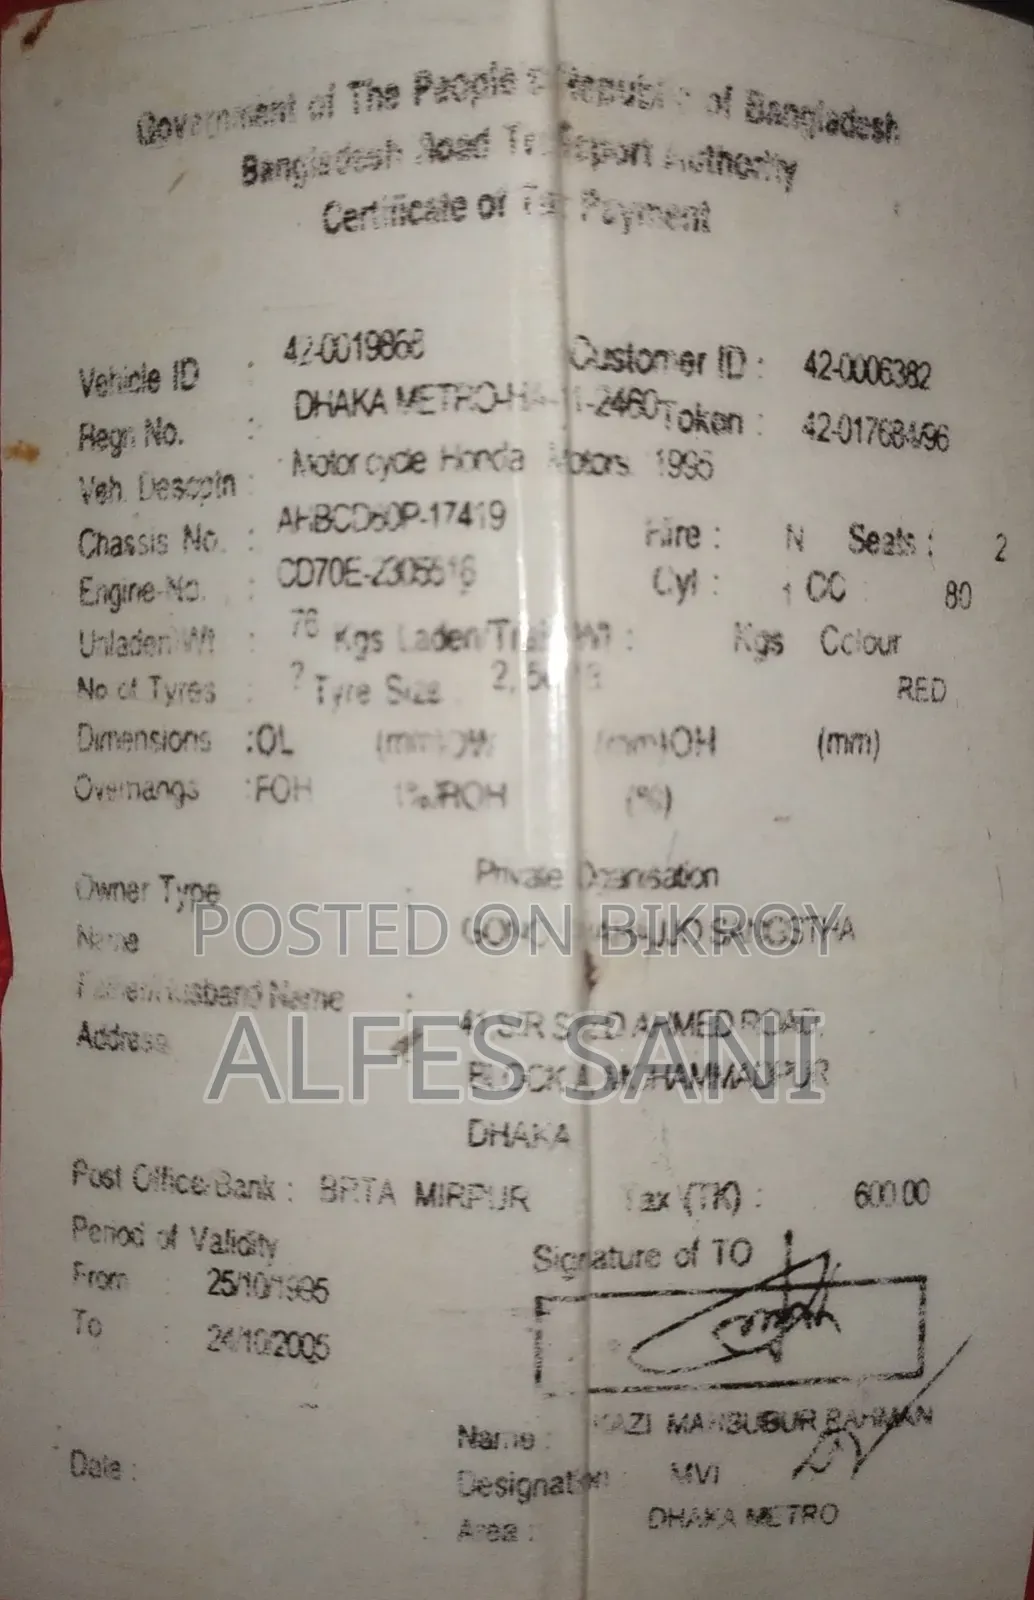 Government of The People's Republic of Bangladesh
Bangladesh Road Transport Authority
Certificate of Tax Payment
Vehicle ID : 42-0019868 Customer ID : 42-0006382
Regn No. : DHAKA METRO-HA-11-2460 Token : 42-017684/96
Veh. Descptn : Motor cycle Honda Motors 1995
Chassis No. : AHBCD80P-17419 Hire : N Seats : 2
Engine No. : CD70E-2305516 Cyl : 1 CC : 80
Unladen Wt : 76 Kgs Laden/Train Wt : Kgs Colour
No of Tyres : 2 Tyre Size : RED
Dimensions :OL (mm)OW (mm)OH (mm)
Overhangs :FOH (%)ROH (%)
Owner Type : Private Oganisation
POSTED ON BIKROY
Name SANGSTHA
Father/Husband Name :
ALFES SANI
Address : SIR SYED AHMED ROAD,
BLOCK A, MOHAMMADPUR
DHAKA
Post Office/Bank : BRTA MIRPUR Tax (TK) : 600.00
Period of Validity
Signature of TO
From : 25/10/1995
To : 24/10/2005
Name : KAZI MAHBUBUR RAHMAN
Date :
Designation : MVI
Area : DHAKA METRO